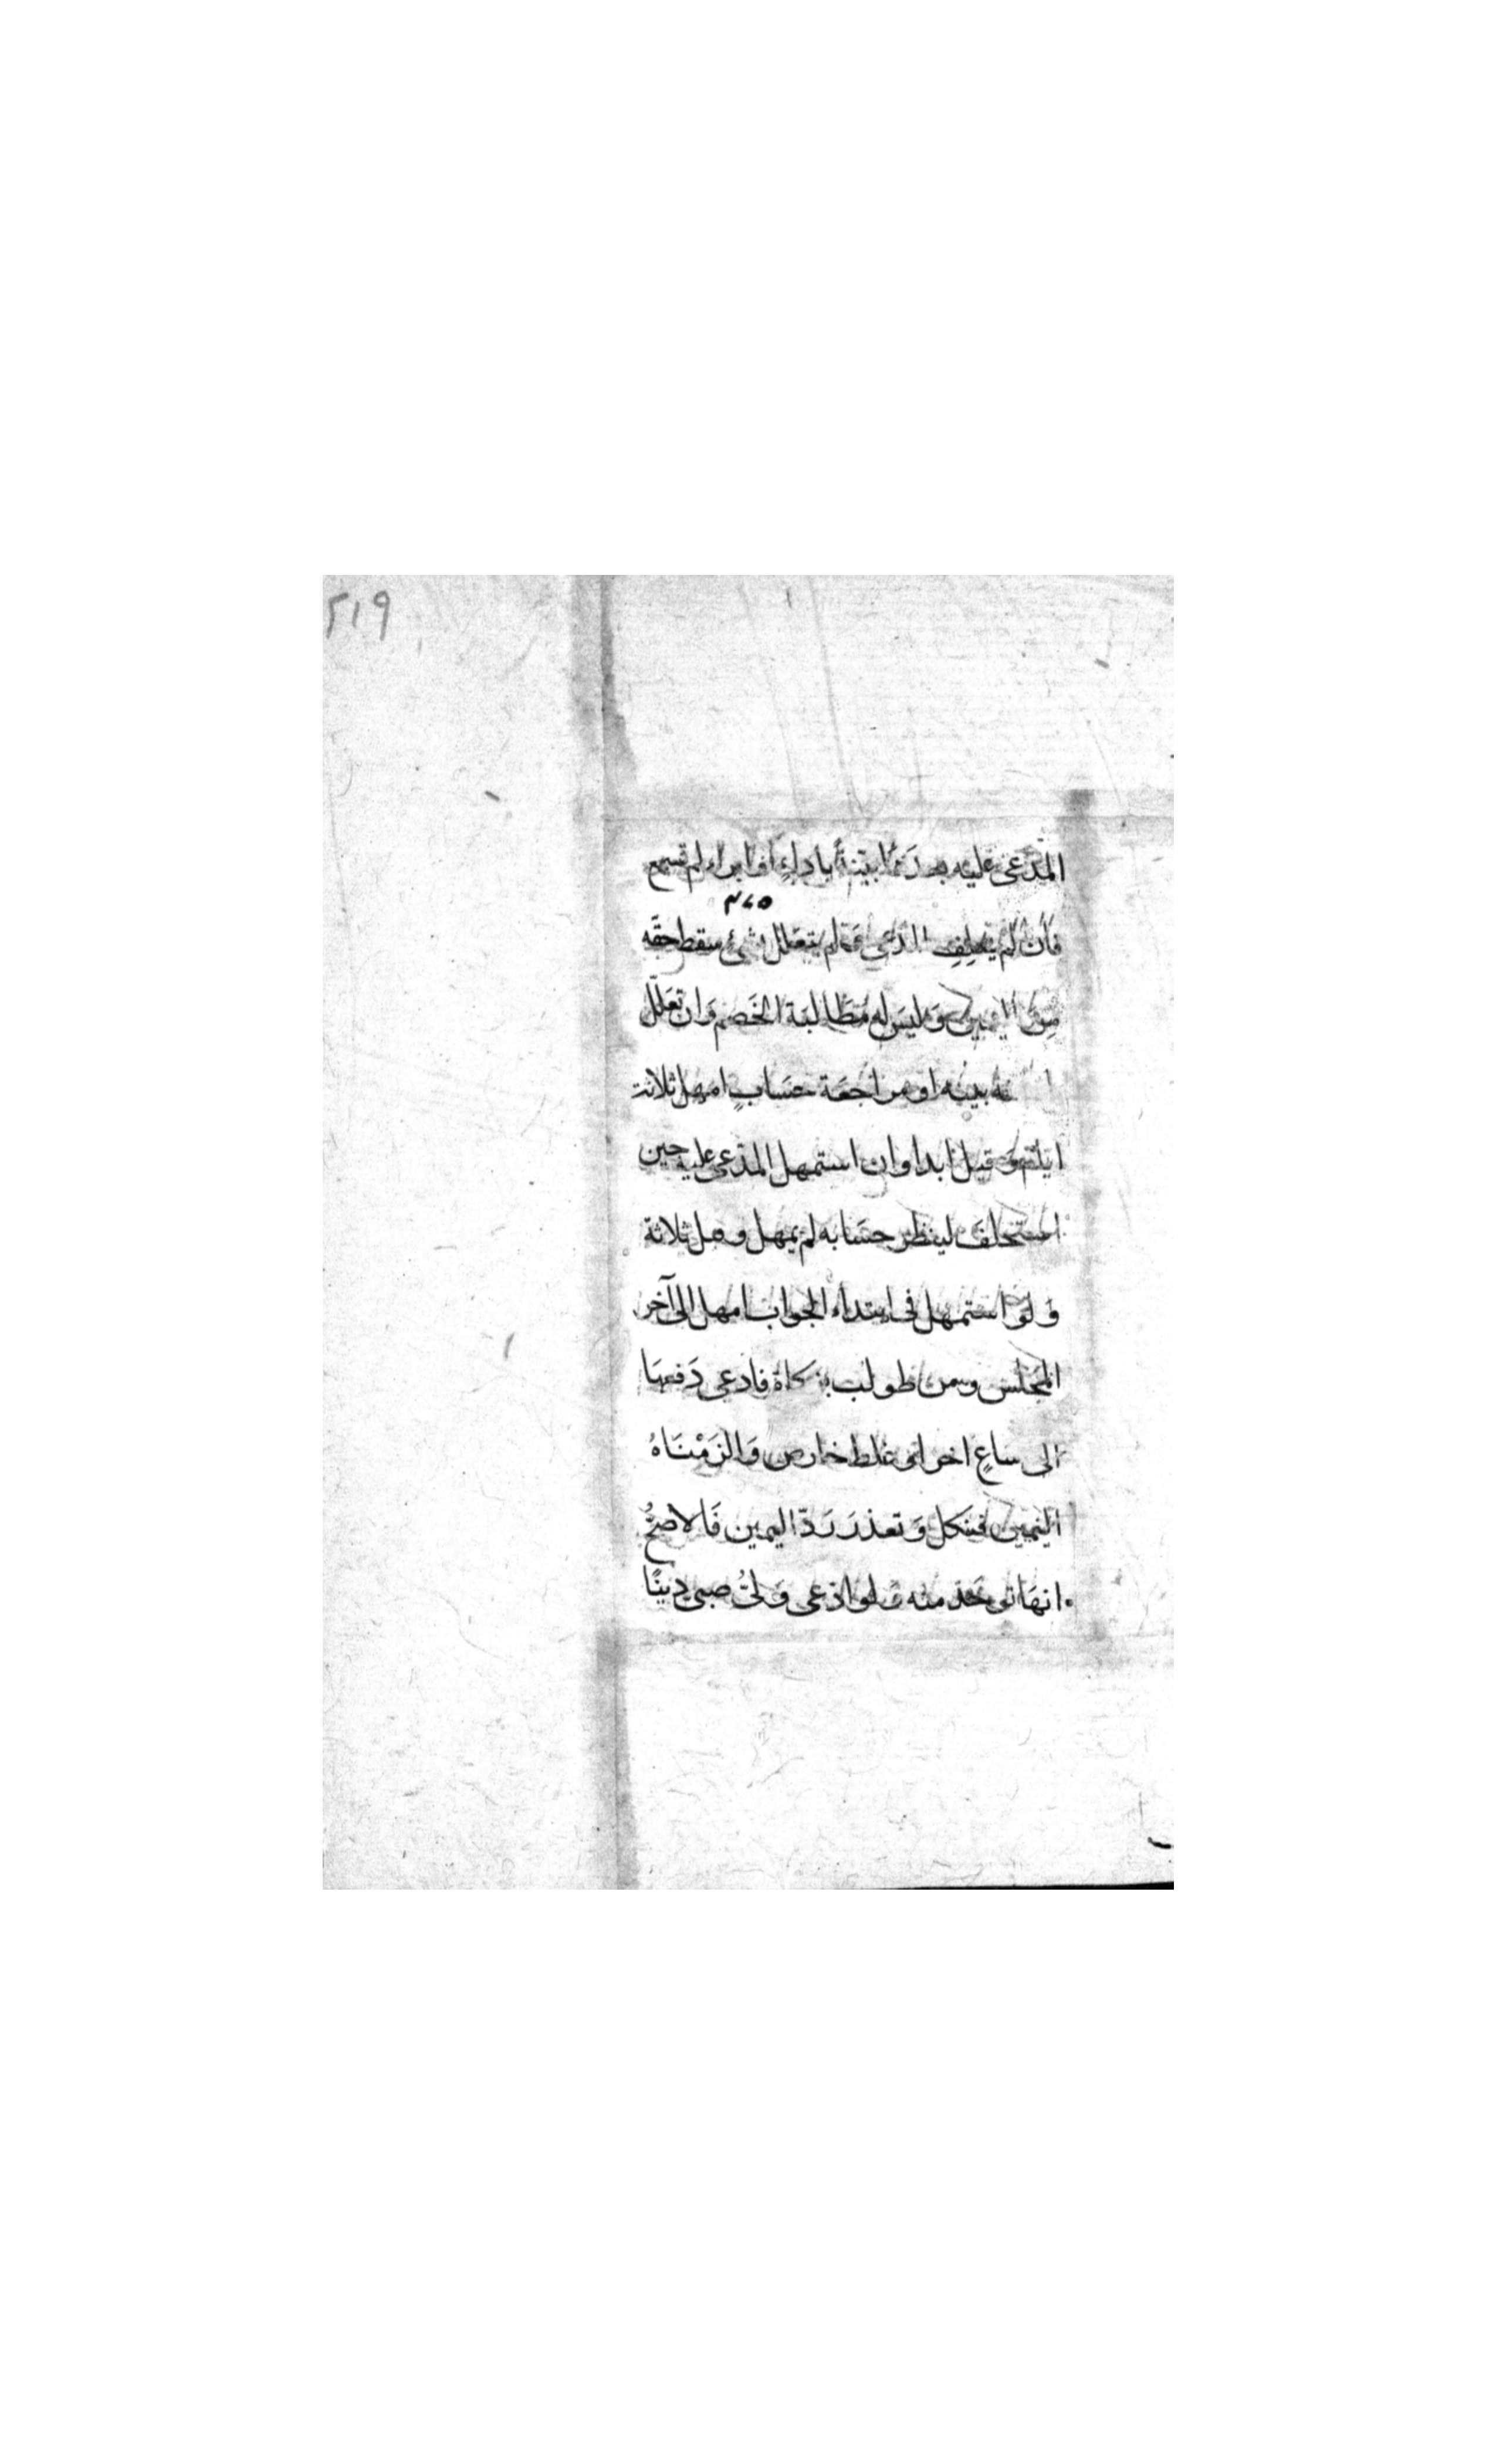 ٢١٩
المدعى عليه بعدها بينة بأداءٍ او ابراء لم تسمع
فان لم يحلف المدعى ولم يتعلل بشئ سقط حقه
من اليمين وليس له مطالبة الخصم وان تعلل
بينه او مراجعة حساب امهل ثلاثة
ايام وقيل ابدا وان استمهل المدعى عليه حين
استحلف لينظر حسابه لم يمهل وقيل ثلاثة
ولو استمهل في ابتداء الجواب امهل الى آخر
المجلس ومن طولب بزكاة فادعى دفعها
الى ساعٍ اخر او غلط خارص والزمناه
اليمين فنكل وتعذر رد اليمين فالاصح
انها تؤخذ منه ولو ادعى ولي صبي دينًا